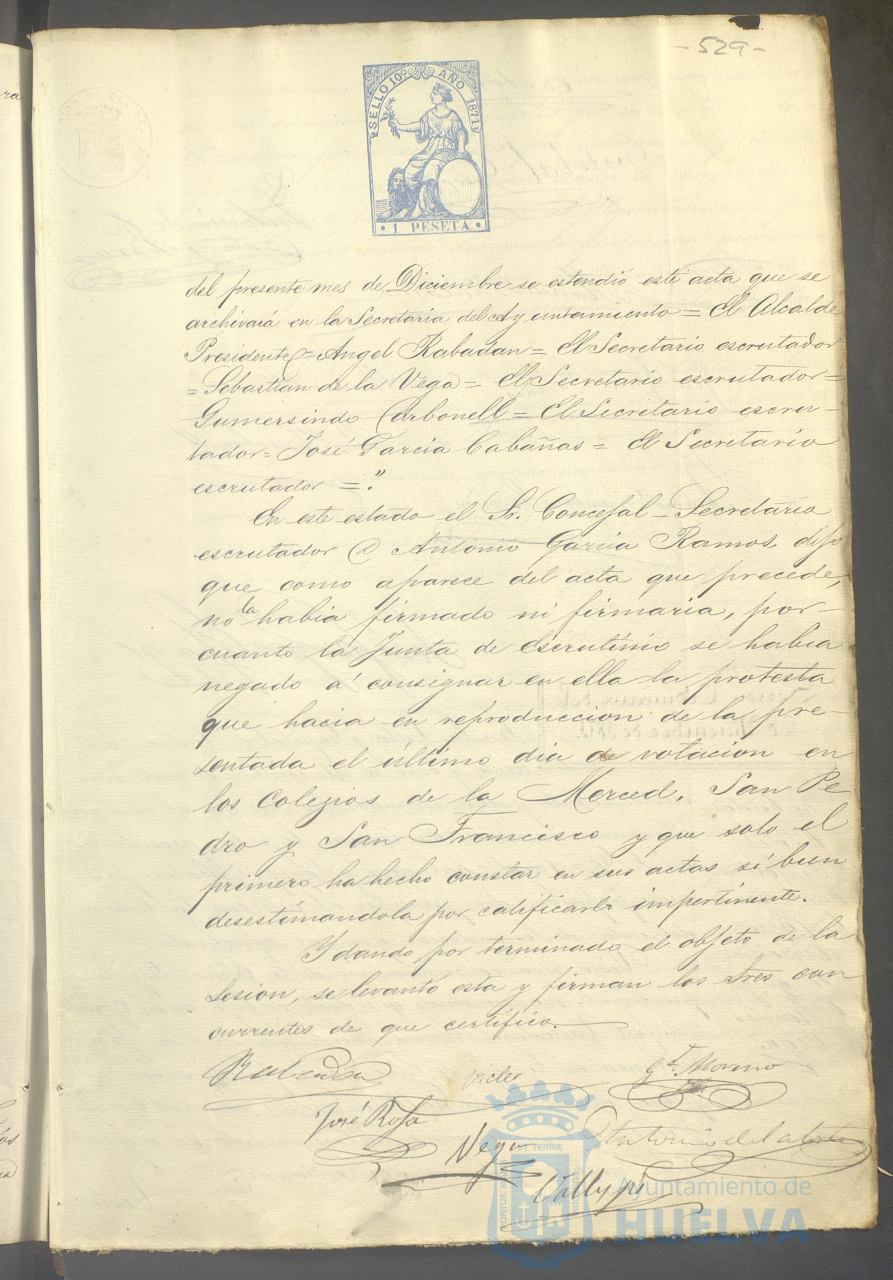 - 529 -
SELLO 10º AÑO 1871
· 1 PESETA ·
del presente mes de Diciembre se estendió este acta que se
archivará en la Secretaria del Ayuntamiento = El Alcalde
Presidente = Angel Rabadan = El Secretario escrutador
= Sebastian de la Vega = El Secretario escrutador =
Gumersindo Carbonell = El Secretario escru-
tador = José Garcia Cabañas = El Secretario
escrutador = ."
En este estado el Sr. Concejal - Secretario
escrutador D Antonio Garcia Ramos, dijo
que como aparece del acta que precede,
no la habia firmado ni firmaria, por-
cuanto la Junta de escrutinio se habia
negado á consignar en ella la protesta
que hacia en reproduccion de la pre-
sentada el último dia de votacion en
los colegios de la Merced, San Pe
dro y San Francisco y que solo el
primero ha hecho constar en sus actas si bien
desestimandola por calificarla impertinente.
Y dando por terminado el objeto de la
sesion, se levantó esta y firman los Sres con
currentes de que certifico.
Rabadan
Gª Moreno
José Rofa
Vega
Antonio de la Corte
Ayuntamiento de
HUELVA
PORTUS
ET TERRÆ